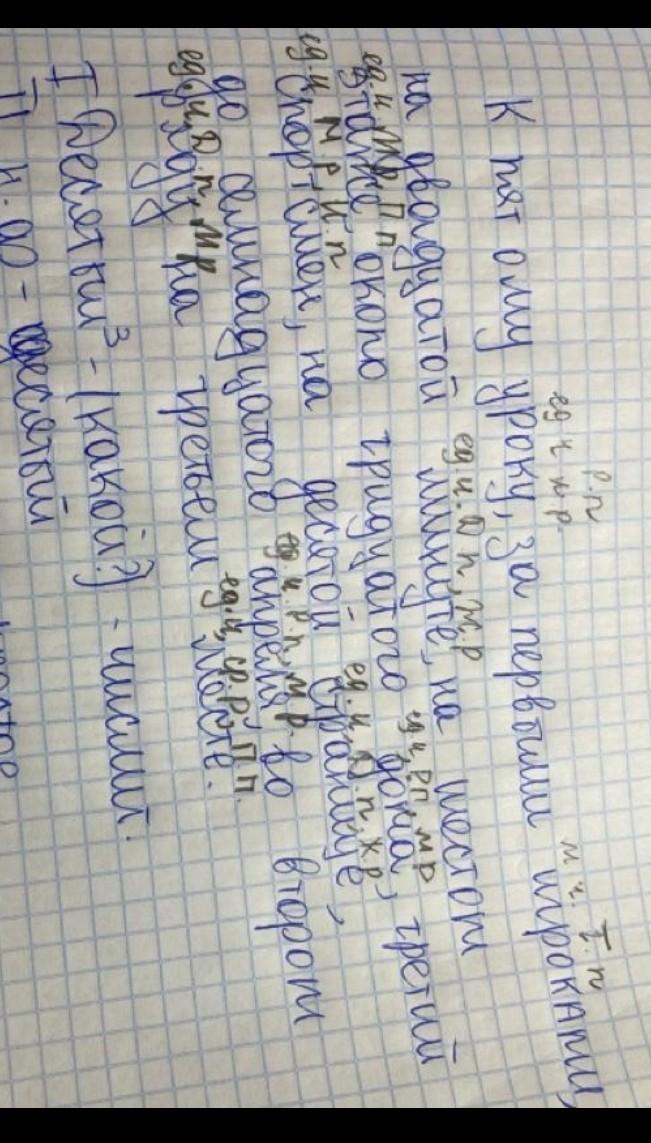 р.п
ед ч м.р. м ч. Т.п
К пятому уроку, за первыми игроками,
ед ч. Д п, ж.р
на двадцатой минуте, на шестом
ед. ч. Мр, П п ед ч, Рп, м р
этаже около тридцатого дома, третий
ед. ч М р, И. п ед. ч. Д. п, ж. р
спортсмен, на десятой странице,
ед. ч. Р п. м. р.
до семнадцатого апреля во втором
ед. ч, Д. п, м р ед. ч, ср. р. П п.
ряду на третьем месте.
I Десятый³ - (какой?) - числит.
II н. ф - десятый